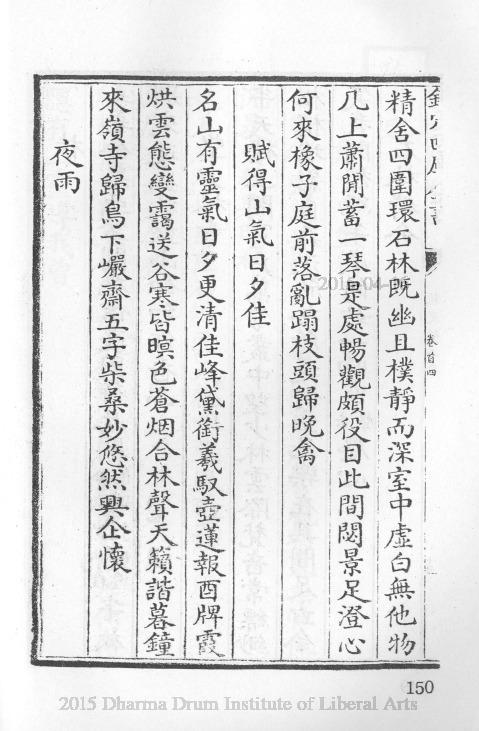 精舍四圍環石林既幽且樸靜而深室中虛白無他物
几上蕭閒蓄一琴是處暢觀頗役目此間閟景足澄心
何來橡子庭前落亂蹋枝頭歸晚禽
賦得山氣日夕佳
名山有靈氣日夕更清佳峰黛銜羲馭壺蓮報酉牌霞
烘雲態變靄送谷寒皆暝色蒼烟合林聲天籟諧暮鐘
來嶺寺歸鳥下巖齋五字柴桑妙悠然興企懷
夜雨
卷首四
150
2015 Dharma Drum Institute of Liberal Arts